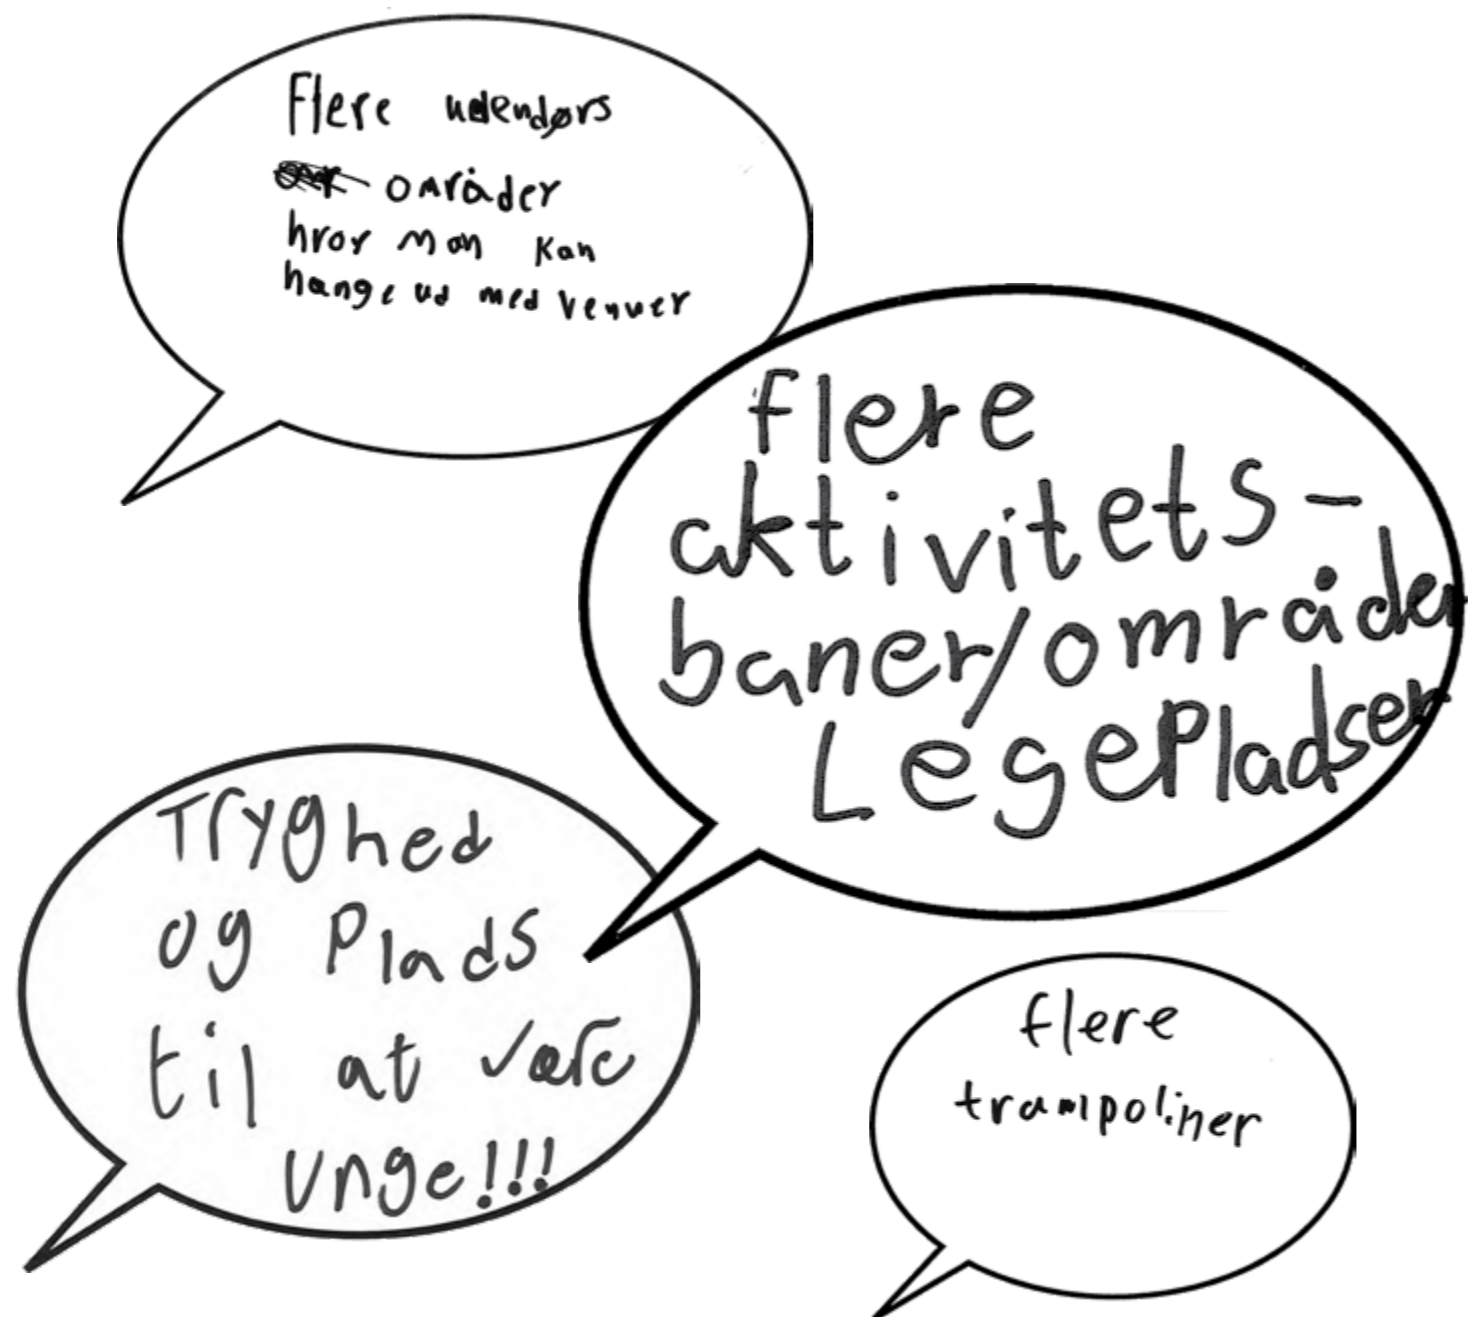 Flere udendørs
områder
hvor man kan
hange ud med venner
flere
aktivitets-
baner/områder
Legepladser
Tryghed
og Plads
til at være
unge!!!
flere
trampoliner